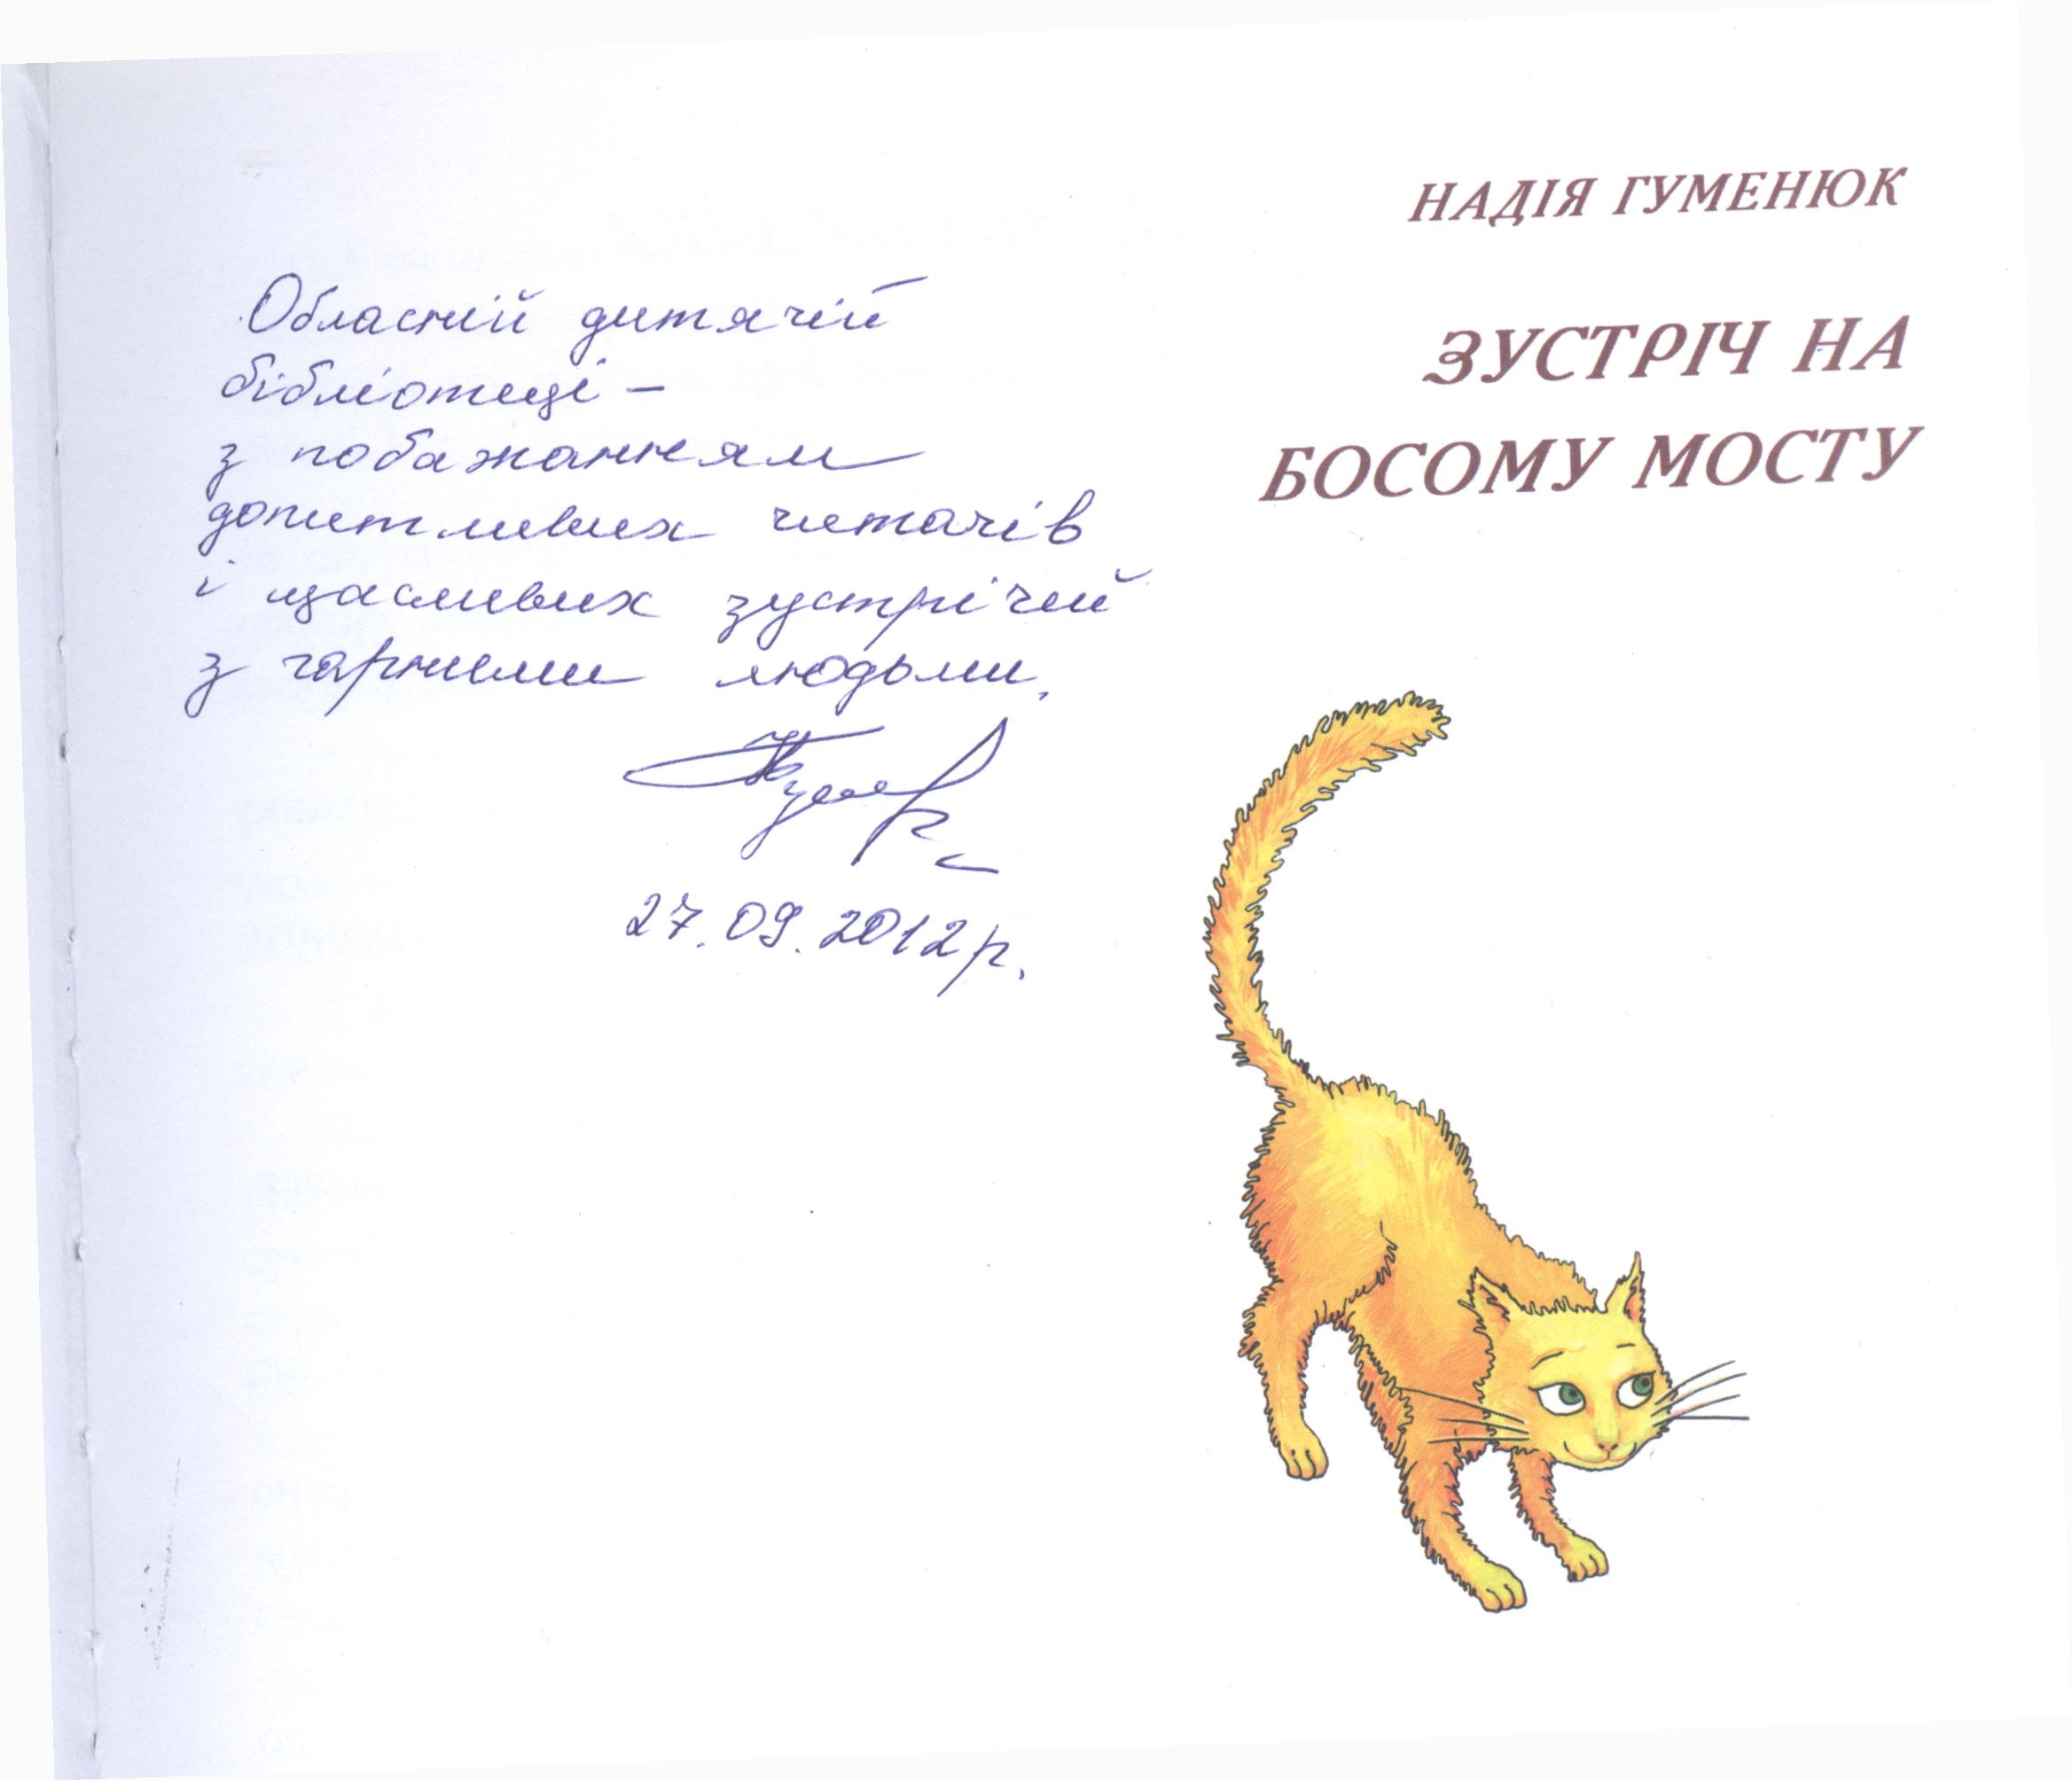 НАДІЯ ГУМЕНЮК
ЗУСТРІЧ НА
БОСОМУ МОСТУ
Обласній дитячій
бібліотеці –
з побажанням
допитливих читачів
і щасливих зустрічей
з гарними людьми.
27.09.2012р.